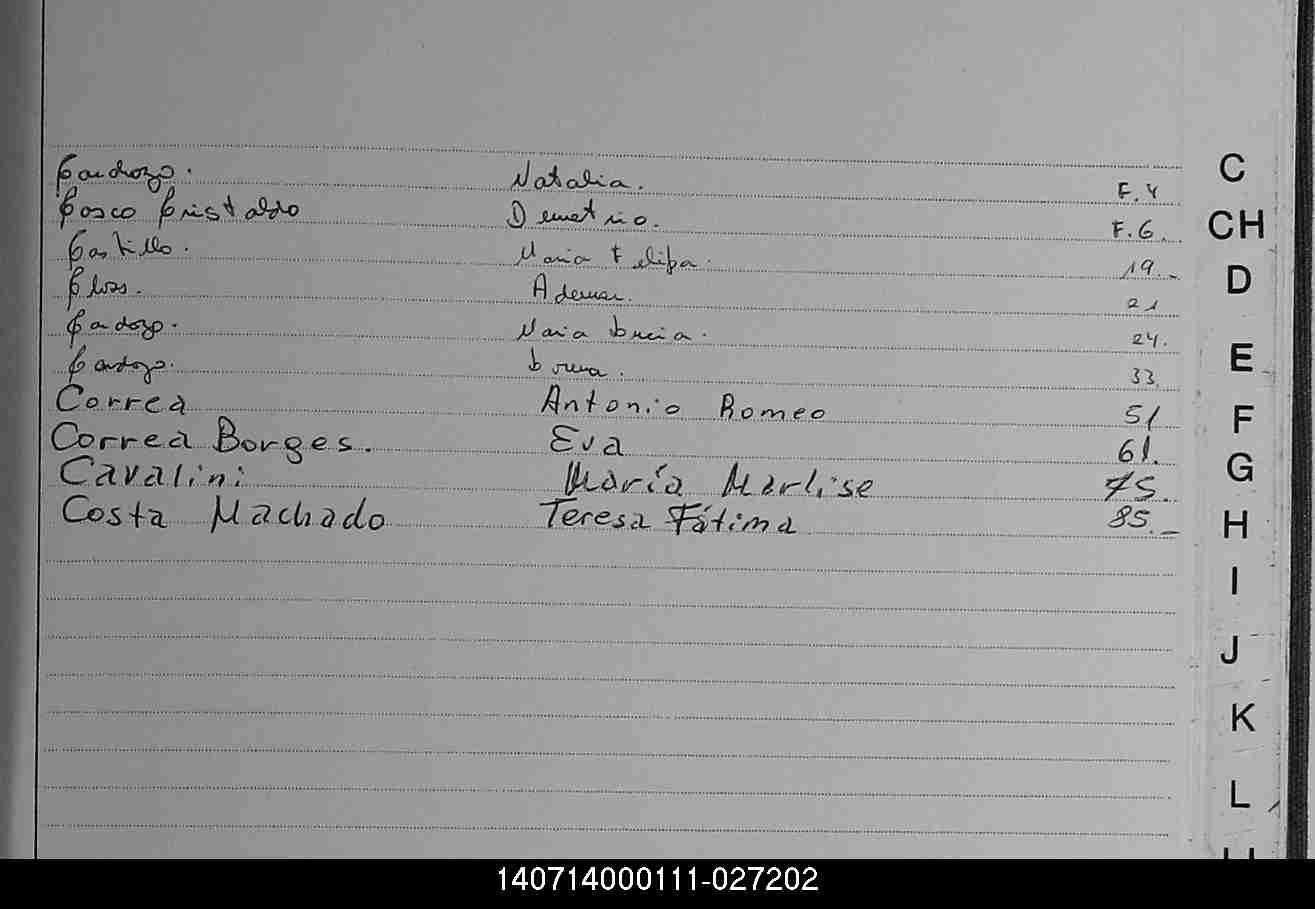 Cardozo. Natalia. F.4
Bosco Cristaldo Demetrio. F.6.
Castillo. Maria Felipa. 19.-
Ademar. 21
Cardozo. Maria Lucia. 24.
Cardozo. Lorena. 33.
Correa Antonio Romeo 51
Correa Borges. Eva 61.
Cavalini María Marlise 75.
Costa Machado Teresa Fátima 85.-
C
CH
D
E
F
G
H
I
J
K
L
140714000111-027202